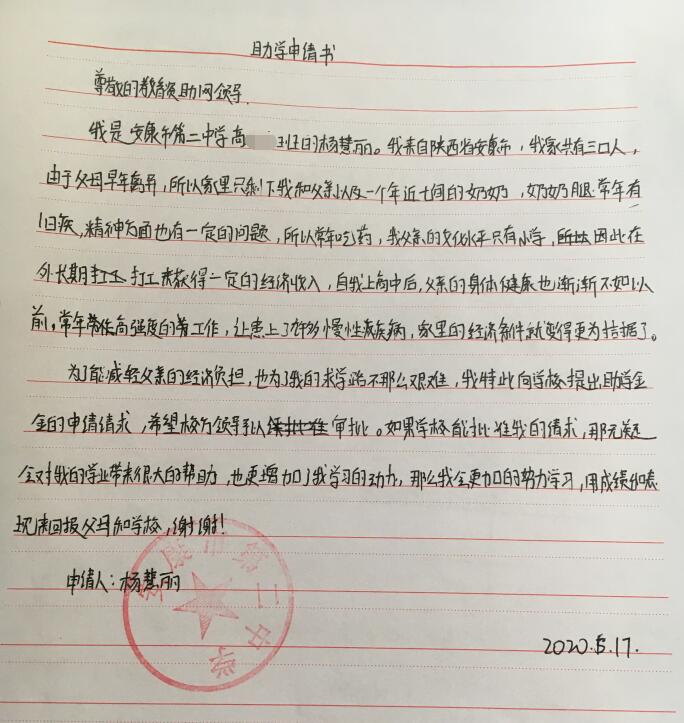 助学申请书
尊敬的教育资助网领导
我是安康市第二中学高 班的杨慧丽。我来自陕西省安康市，我家共有三口人，
由于父母早年离异，所以家里只剩下我和父亲以及一个年近七旬的奶奶，奶奶腿常年有
旧疾，精神方面也有一定的问题，所以常年吃药，我父亲的文化水平只有小学，所以因此在
外长期打工打工来获得一定的经济收入，自我上高中后，父亲的身体健康也渐渐不如以
前。常年带作高强度的着工作，让患上了许多慢性疾病，家里的经济条件就变得更为拮据了。
为了能减轻父亲的经济负担，也为了我的求学路不那么艰难，我特此向学校提出助学金
金的申请请求，希望校方领导予以 审批。如果学校能批准我的请求，那无疑
会对我的学业带来很大的帮助，也更增加了我学习的动力，那么我会更加的努力学习，用成绩和表
现来回报父母和学校，谢谢！
申请人：杨慧丽
安康市第二中学
2020.5.17.